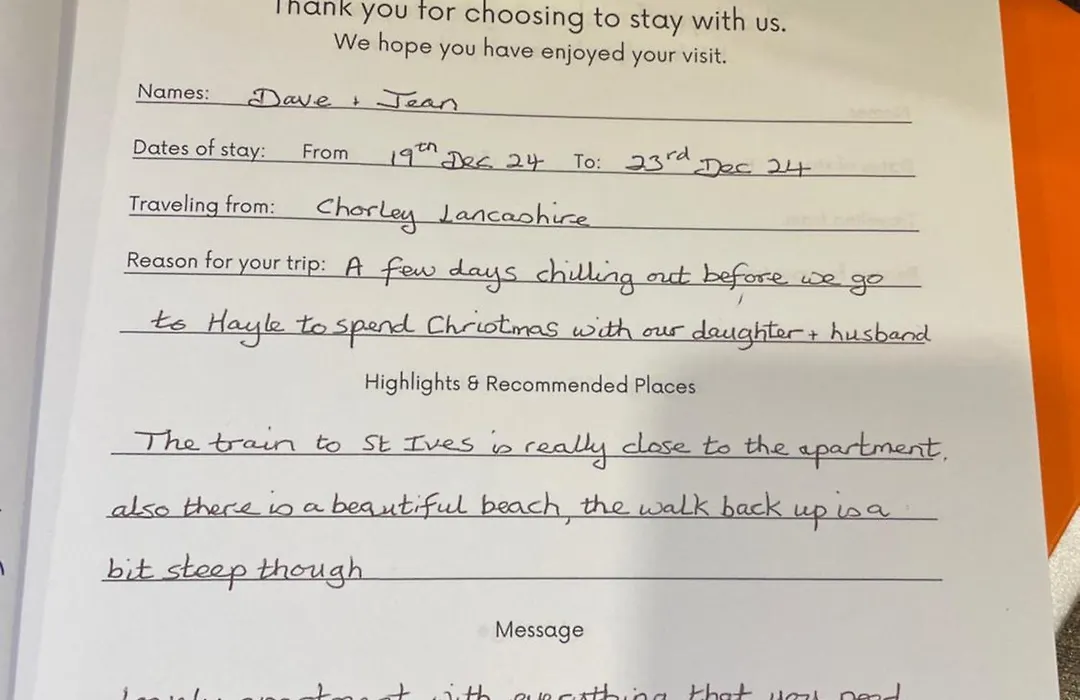 Thank you for choosing to stay with us.
We hope you have enjoyed your visit.
Names: Dave + Jean
Dates of stay: From 19th Dec 24 To: 23rd Dec 24
Traveling from: Chorley Lancashire
Reason for your trip: A few days chilling out before we go
to Hayle to spend Christmas with our daughter + husband
Highlights & Recommended Places
The train to St Ives is really close to the apartment.
also there is a beautiful beach, the walk back up is a
bit steep though
Message
Lovely apartment with everything that you need